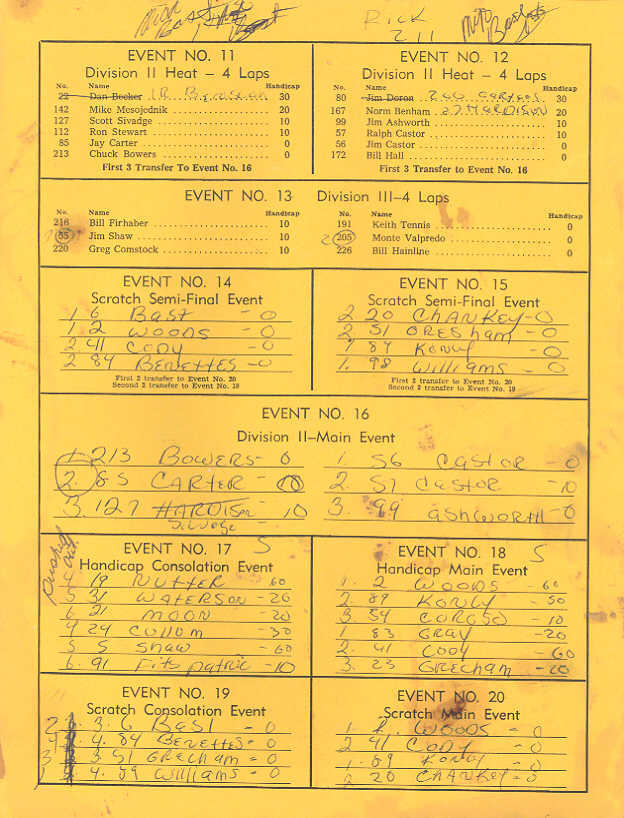 Rick
211
EVENT NO. 11
Division II Heat – 4 Laps
No. Name Handicap
22 Dan Becker 30
142 Mike Mesojednik 20
127 Scott Sivadge 10
112 Ron Stewart 10
85 Jay Carter 0
213 Chuck Bowers 0
First 3 Transfer To Event No. 16
EVENT NO. 12
Division II Heat – 4 Laps
No. Name Handicap
80 Jim Doron 30
167 Norm Benham 27 HARDISON 20
99 Jim Ashworth 10
57 Ralph Castor 10
56 Jim Castor 0
172 Bill Hall 0
First 3 Transfer to Event No. 16
EVENT NO. 13 Division III—4 Laps
No. Name Handicap
216 Bill Firhaber 10
55 Jim Shaw 10
220 Greg Comstock 0
No. Name Handicap
191 Keith Tennis 0
2 205 Monte Valpredo 0
226 Bill Hainline 0
EVENT NO. 14
Scratch Semi-Final Event
1 6 BAST - 0
1 2 WOODS - 0
2 41 CODY - 0
2 84 BENETTES - 0
First 2 transfer to Event No. 20
Second 2 transfer to Event No. 19
EVENT NO. 15
Scratch Semi-Final Event
2 20 CHANKEY - 0
2 51 GRESham - 0
1 89 KONLY - 0
1. 98 Williams - 0
First 2 transfer to Event No. 20
Second 2 transfer to Event No. 19
EVENT NO. 16
Division II—Main Event
1 213 BOWERS - 0
2. 85 CARTER - 0
3 127 HARDISON - 10
1. 56 CASTOR - 0
2 57 CASTOR - 10
3. 99 ASHWORTH - 0
EVENT NO. 17 S
Handicap Consolation Event
4 19 NUTTER 60
5 31 WATERSON - 20
6 21 MOON - 20
4 24 CULLUM - 30
5 5 SHAW - 60
6. 91 Fitspatric - 10
EVENT NO. 18 S
Handicap Main Event
1. 2 WOODS - 60
2. 89 KONLY - 50
3. 54 COROSO - 10
1 83 GRAY - 20
2. 41 CODY - 60
3. 23 GRECHAM - 20
EVENT NO. 19
Scratch Consolation Event
3. 6 BAST - 0
4. 84 BENETTES - 0
3 51 GRECHAM - 0
4. 89 WILLIAMS - 0
EVENT NO. 20
Scratch Main Event
1. 2. WOODS - 0
2 41 CODY - 0
1. 89 KONLY - 0
2 20 CHANKEY - 0